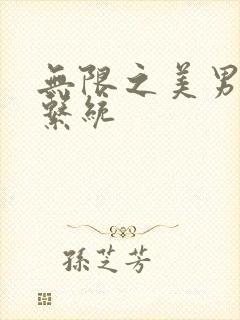 無限之美男
繫統
孫芝芳